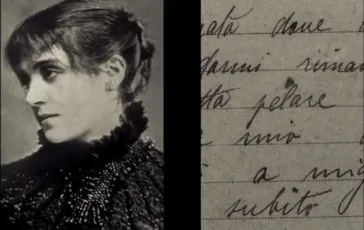 ata dove a
darmi riman
tta pelare
mio
a mig
subito